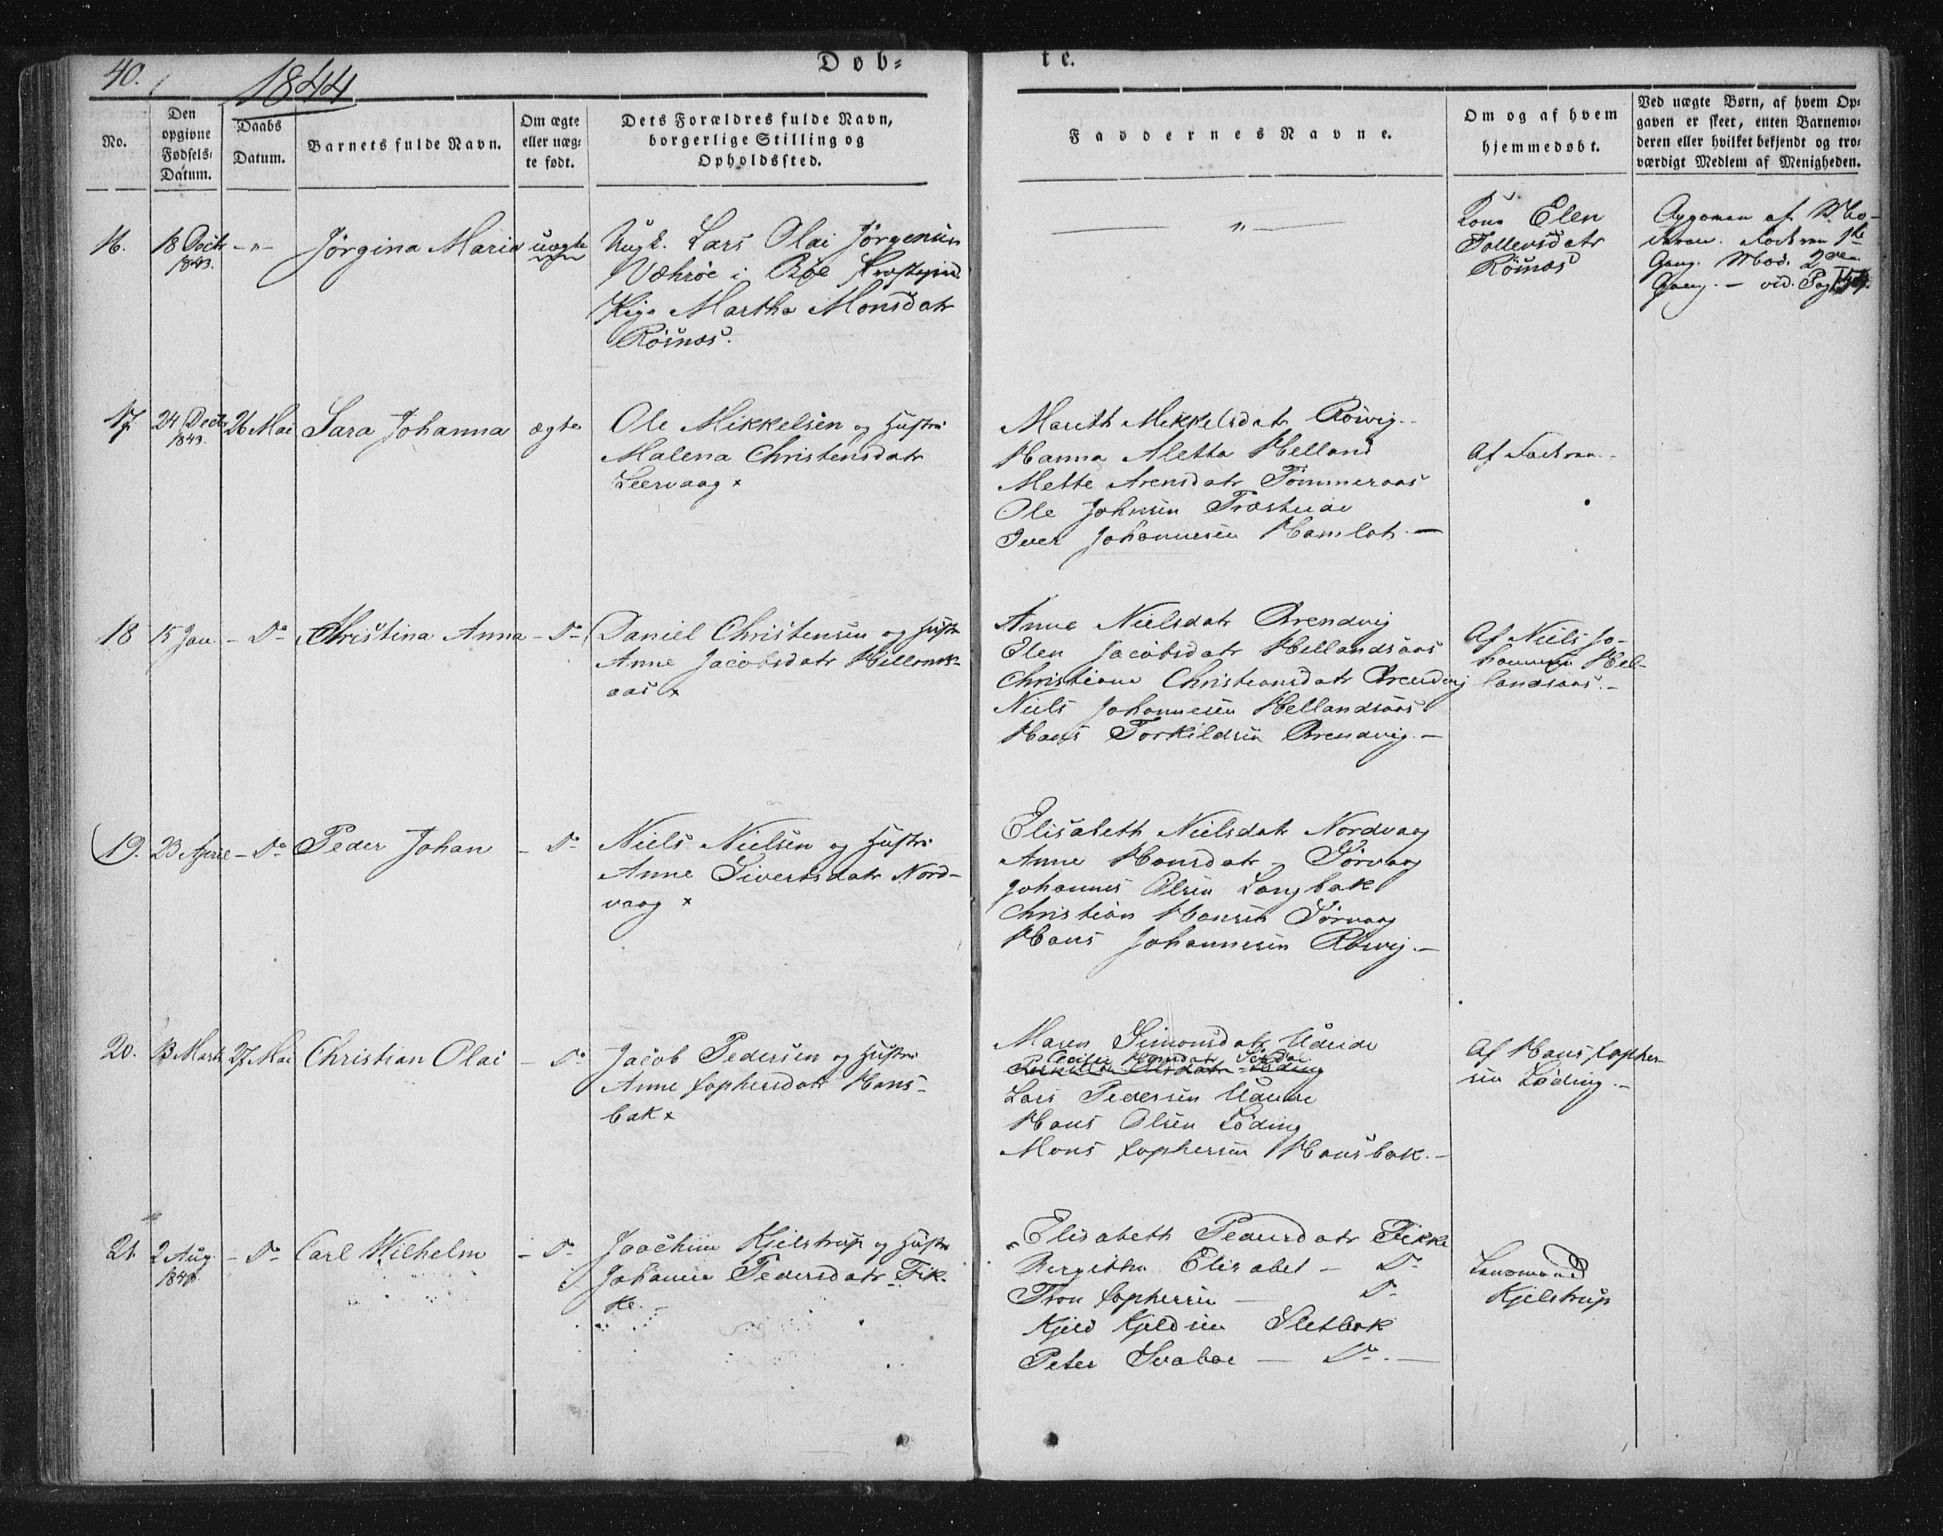 40.
1844
Døb=
te.
No.
Den opgivne Fødsels-Datum.
Daabs Datum.
Barnets fulde Navn.
Om ægte eller uægte født.
Dets Forældres fulde Navn, borgerlige Stilling og Opholdssted.
Faddernes Navne.
Om og af hvem hjemmedøbt.
Ved uægte Børn, af hvem Opgaven er skeet, enten Barnemoderen eller hvilket bekjendt og troværdigt Medlem af Menigheden.
16. 18 Decbr 1843. -„- Jørgina Maria uægte
Ungk. Lars Olai Jørgensen
i Bøe Præstegjd.
Pige Martha Monsdatr
Rösnæs.
„
Kone Elen
Tollevsdatr
Rösnæs
Opgiven af Mo-
deren. Faderen 1ste
Gang. Mod. 2den
Gang. — vid. Pag
17. 24 Decbr 1843. 26 Mai Sara Johanna ægte
Ole Mikkelsen og Hustru
Malena Christensdatr
Leervaag x
Marith Mikkelsdatr Rörvig.
Hanna Aletta Helland
Mette Arensdatr Tömmeraas
Ole Johnsen Træsteide
Iver Johannesen Hamlot. —
Af Faderen.
18 15 Jan - Do Christina Anna - Do
Daniel Christensen og Hustru
Anne Jacobsdatr Hellands-
aas x
Anne Nielsdatr Brendvig
Elen Jacobsdatr Hellandsaas
Christiane Christiansdatr Brendvig
Niels Johannesen Hellandsaas
Hans Torkildsen Brendvig. —
Af Niels Jo-
hannesen Hel-
landsaas. —
19. 23 April - Do Peder Johan - Do
Niels Nielsen og Hustru
Anne Sivertsdatr Nord-
vaag x
Elisabeth Nielsdatr Nordvaag
Anne Hansdatr Sörvaag
Johannes Olsen Langbak
Christian Hansen Sörvaag
Hans Johannesen Rörvig. —
20. 13 Marts 27 Mai Christian Olai - Do
Jacob Pedersen og Hustru
Anne Tophersdatr Hans-
bak x
Maren Simonsdatr Uteide
Lars Pedersen Uteide
Hans Olsen Löding
Mons Tophersen Hansbak. —
Af Hans Topher-
sen Löding. —
21. 2 Aug. - Do Carl Wilhelm - Do
Joachim Kjelstrup og Hustru
Johanne Pedersdatr Fik-
ke. —
Elisabeth Pedersdatr Fikke
Bergitha Elisabet — Do
Tron Tophersen — Do
Kjeld Kjeldsen Sletbak
Peter Svaboe — Do. —
Lensmand
Kjelstrup